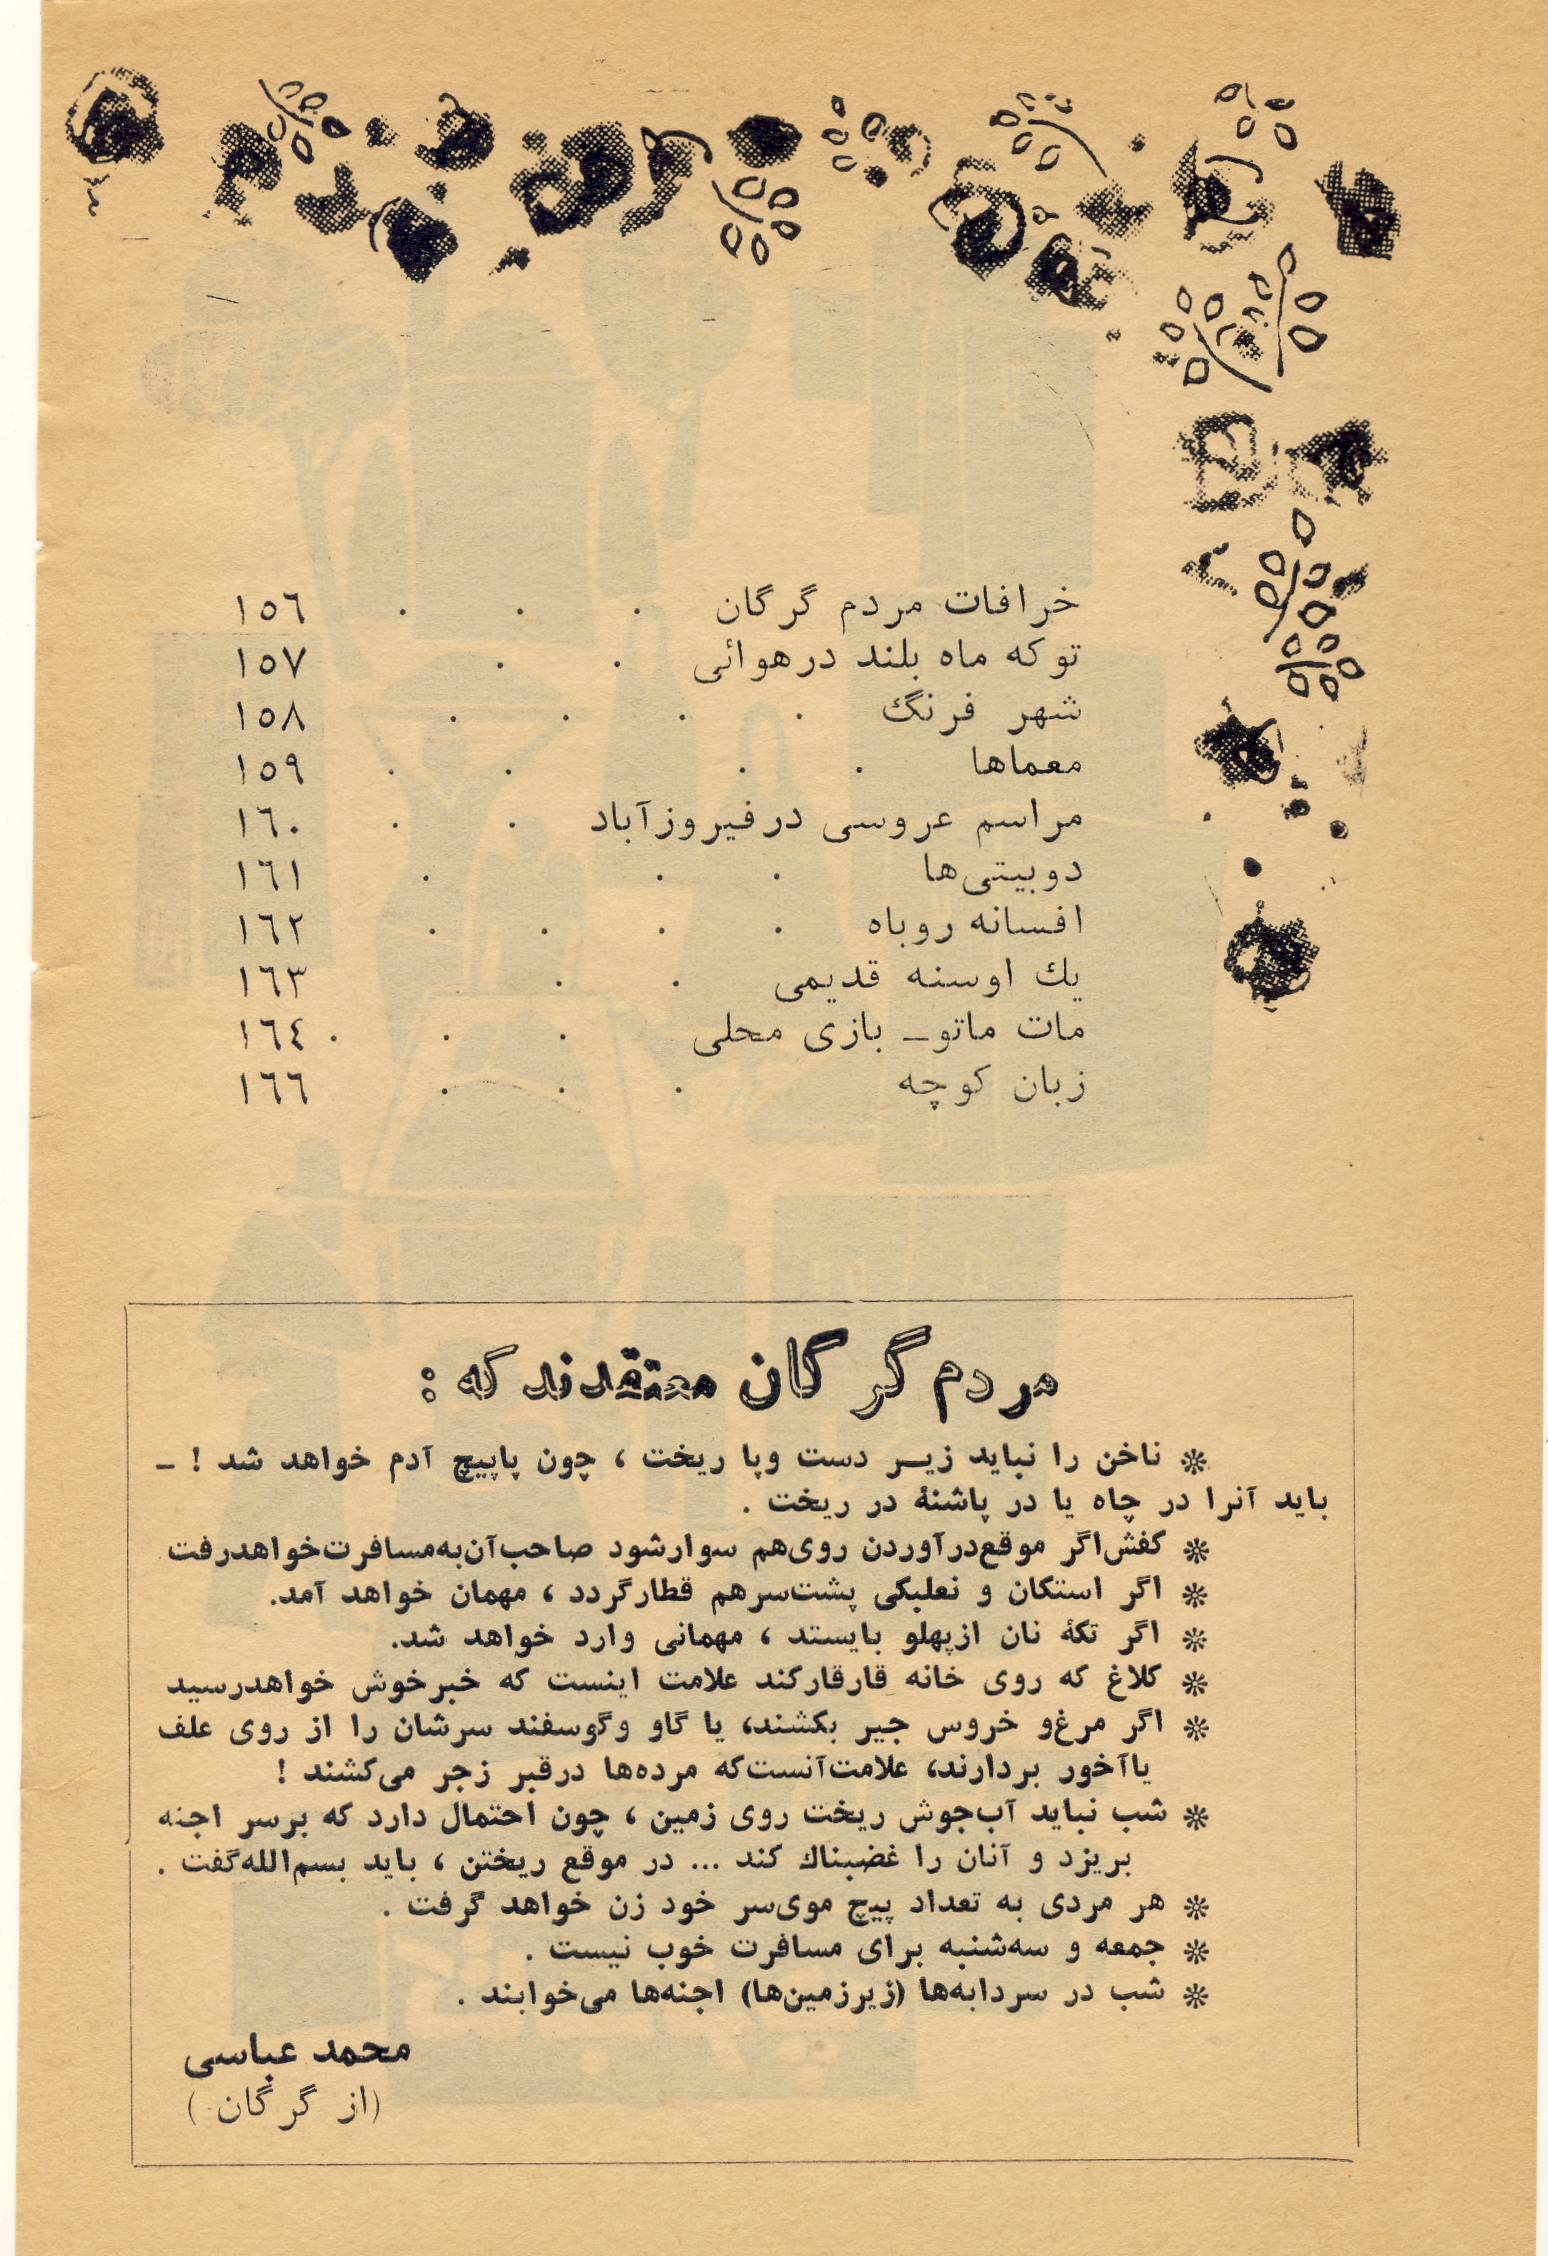 خرافات مردم گرگان . . . ١٥٦
توکه ماه بلند درهوائی . . ١٥٧
شهر فرنگ . . . . ١٥٨
معماها . . . . ١٥٩
مراسم عروسی درفیروزآباد . . ١٦٠
دوبیتی‌ها . . . ١٦١
افسانه روباه . . . . ١٦٢
یك اوسنه قدیمی . . ١٦٣
مات ماتو_ بازی محلی . . . ١٦٤
زبان کوچه . . . ١٦٦
مردم گرگان معتقدند که :
❊ ناخن را نباید زیـر دست وپا ریخت ، چون پاپیچ آدم خواهد شد ! _
باید آنرا در چاه یا در پاشنهٔ در ریخت .
❊ کفش‌اگر موقع‌درآوردن روی‌هم سوارشود صاحب‌آن‌به‌مسافرت‌خواهدرفت
❊ اگر استکان و نعلبکی پشت‌سرهم قطارگردد ، مهمان خواهد آمد.
❊ اگر تکهٔ نان ازپهلو بایستد ، مهمانی وارد خواهد شد.
❊ کلاغ که روی خانه قارقارکند علامت اینست که خبرخوش خواهدرسید
❊ اگر مرغ‌و خروس جیر بکشند، یا گاو وگوسفند سرشان را از روی علف
یاآخور بردارند، علامت‌آنست‌که مرده‌ها درقبر زجر می‌کشند !
❊ شب نباید آب‌جوش ریخت روی زمین ، چون احتمال دارد که برسر اجنه
بریزد و آنان را غضبناك کند ... در موقع ریختن ، باید بسم‌الله‌گفت .
❊ هر مردی به تعداد پیچ موی‌سر خود زن خواهد گرفت .
❊ جمعه و سه‌شنبه برای مسافرت خوب نیست .
❊ شب در سردابه‌ها (زیرزمین‌ها) اجنه‌ها می‌خوابند .
محمد عباسی
(از گرگان )